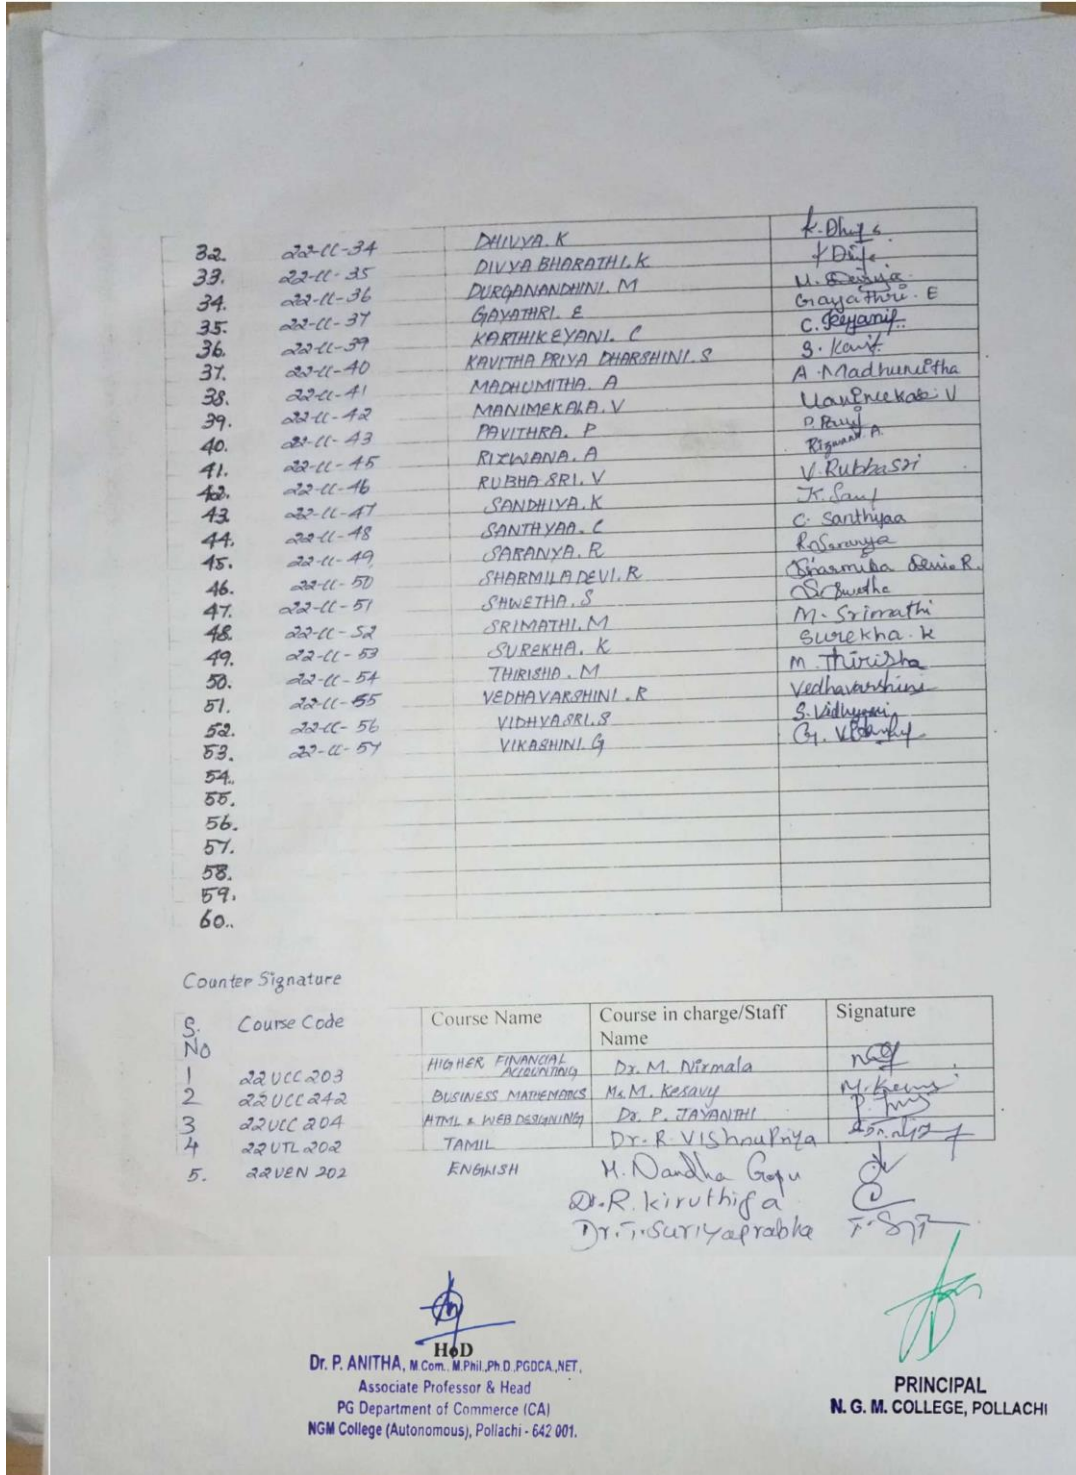 32. 22-CC-34 DHIVYA. K
33. 22-CC-35 DIVYA BHARATHI. K
34. 22-CC-36 DURGANANDHINI. M
35. 22-CC-37 GAYATHRI. E Gayathri. E
36. 22-CC-39 KARTHIKEYANI. C
37. 22-CC-40 KAVITHA PRIYA DHARSHINI. S
38. 22-CC-41 MADHUMITHA. A A. Madhumitha
39. 22-CC-42 MANIMEKALA. V
40. 22-CC-43 PAVITHRA. P
41. 22-CC-45 RIZWANA. A
42. 22-CC-46 RUBHA SRI. V V. Rubbasri
43 22-CC-47 SANDHIYA. K
44. 22-CC-48 SANTHYAA. C C. Santhyaa
45. 22-CC-49 SARANYA. R R. Saranya
46. 22-CC-50 SHARMILA DEVI. R
47. 22-CC-51 SHWETHA. S S. Swetha
48. 22-CC-52 SRIMATHI. M M. Srimathi
49. 22-CC-53 SUREKHA. K Surekha. K
50. 22-CC-54 THIRISHA. M M. Thirisha
51. 22-CC-55 VEDHAVARSHINI. R Vedhavarshini
52. 22-CC-56 VIDHYASRI. S
53. 22-CC-57 VIKASHINI. G
54.
55.
56.
57.
58.
59.
60..
Counter Signature
S. No Course Code Course Name Course in charge/Staff Name Signature
1 22UCC203 HIGHER FINANCIAL ACCOUNTING Dr. M. Nirmala
2 22UCC242 BUSINESS MATHEMATICS M. Kesavy
3 22UCC204 HTML & WEB DESIGNING Dr. P. JAYANTHI
4 22UTL202 TAMIL Dr. R. VishnuPriya
5. 22UEN202 ENGLISH M. Nandha Gopu
Dr. R. Kiruthiga
Dr. T. Suriyaprabha
HoD
Dr. P. ANITHA, M.Com., M.Phil.,Ph.D.,PGDCA.,NET.,
Associate Professor & Head
PG Department of Commerce (CA)
NGM College (Autonomous), Pollachi - 642 001.
PRINCIPAL
N. G. M. COLLEGE, POLLACHI